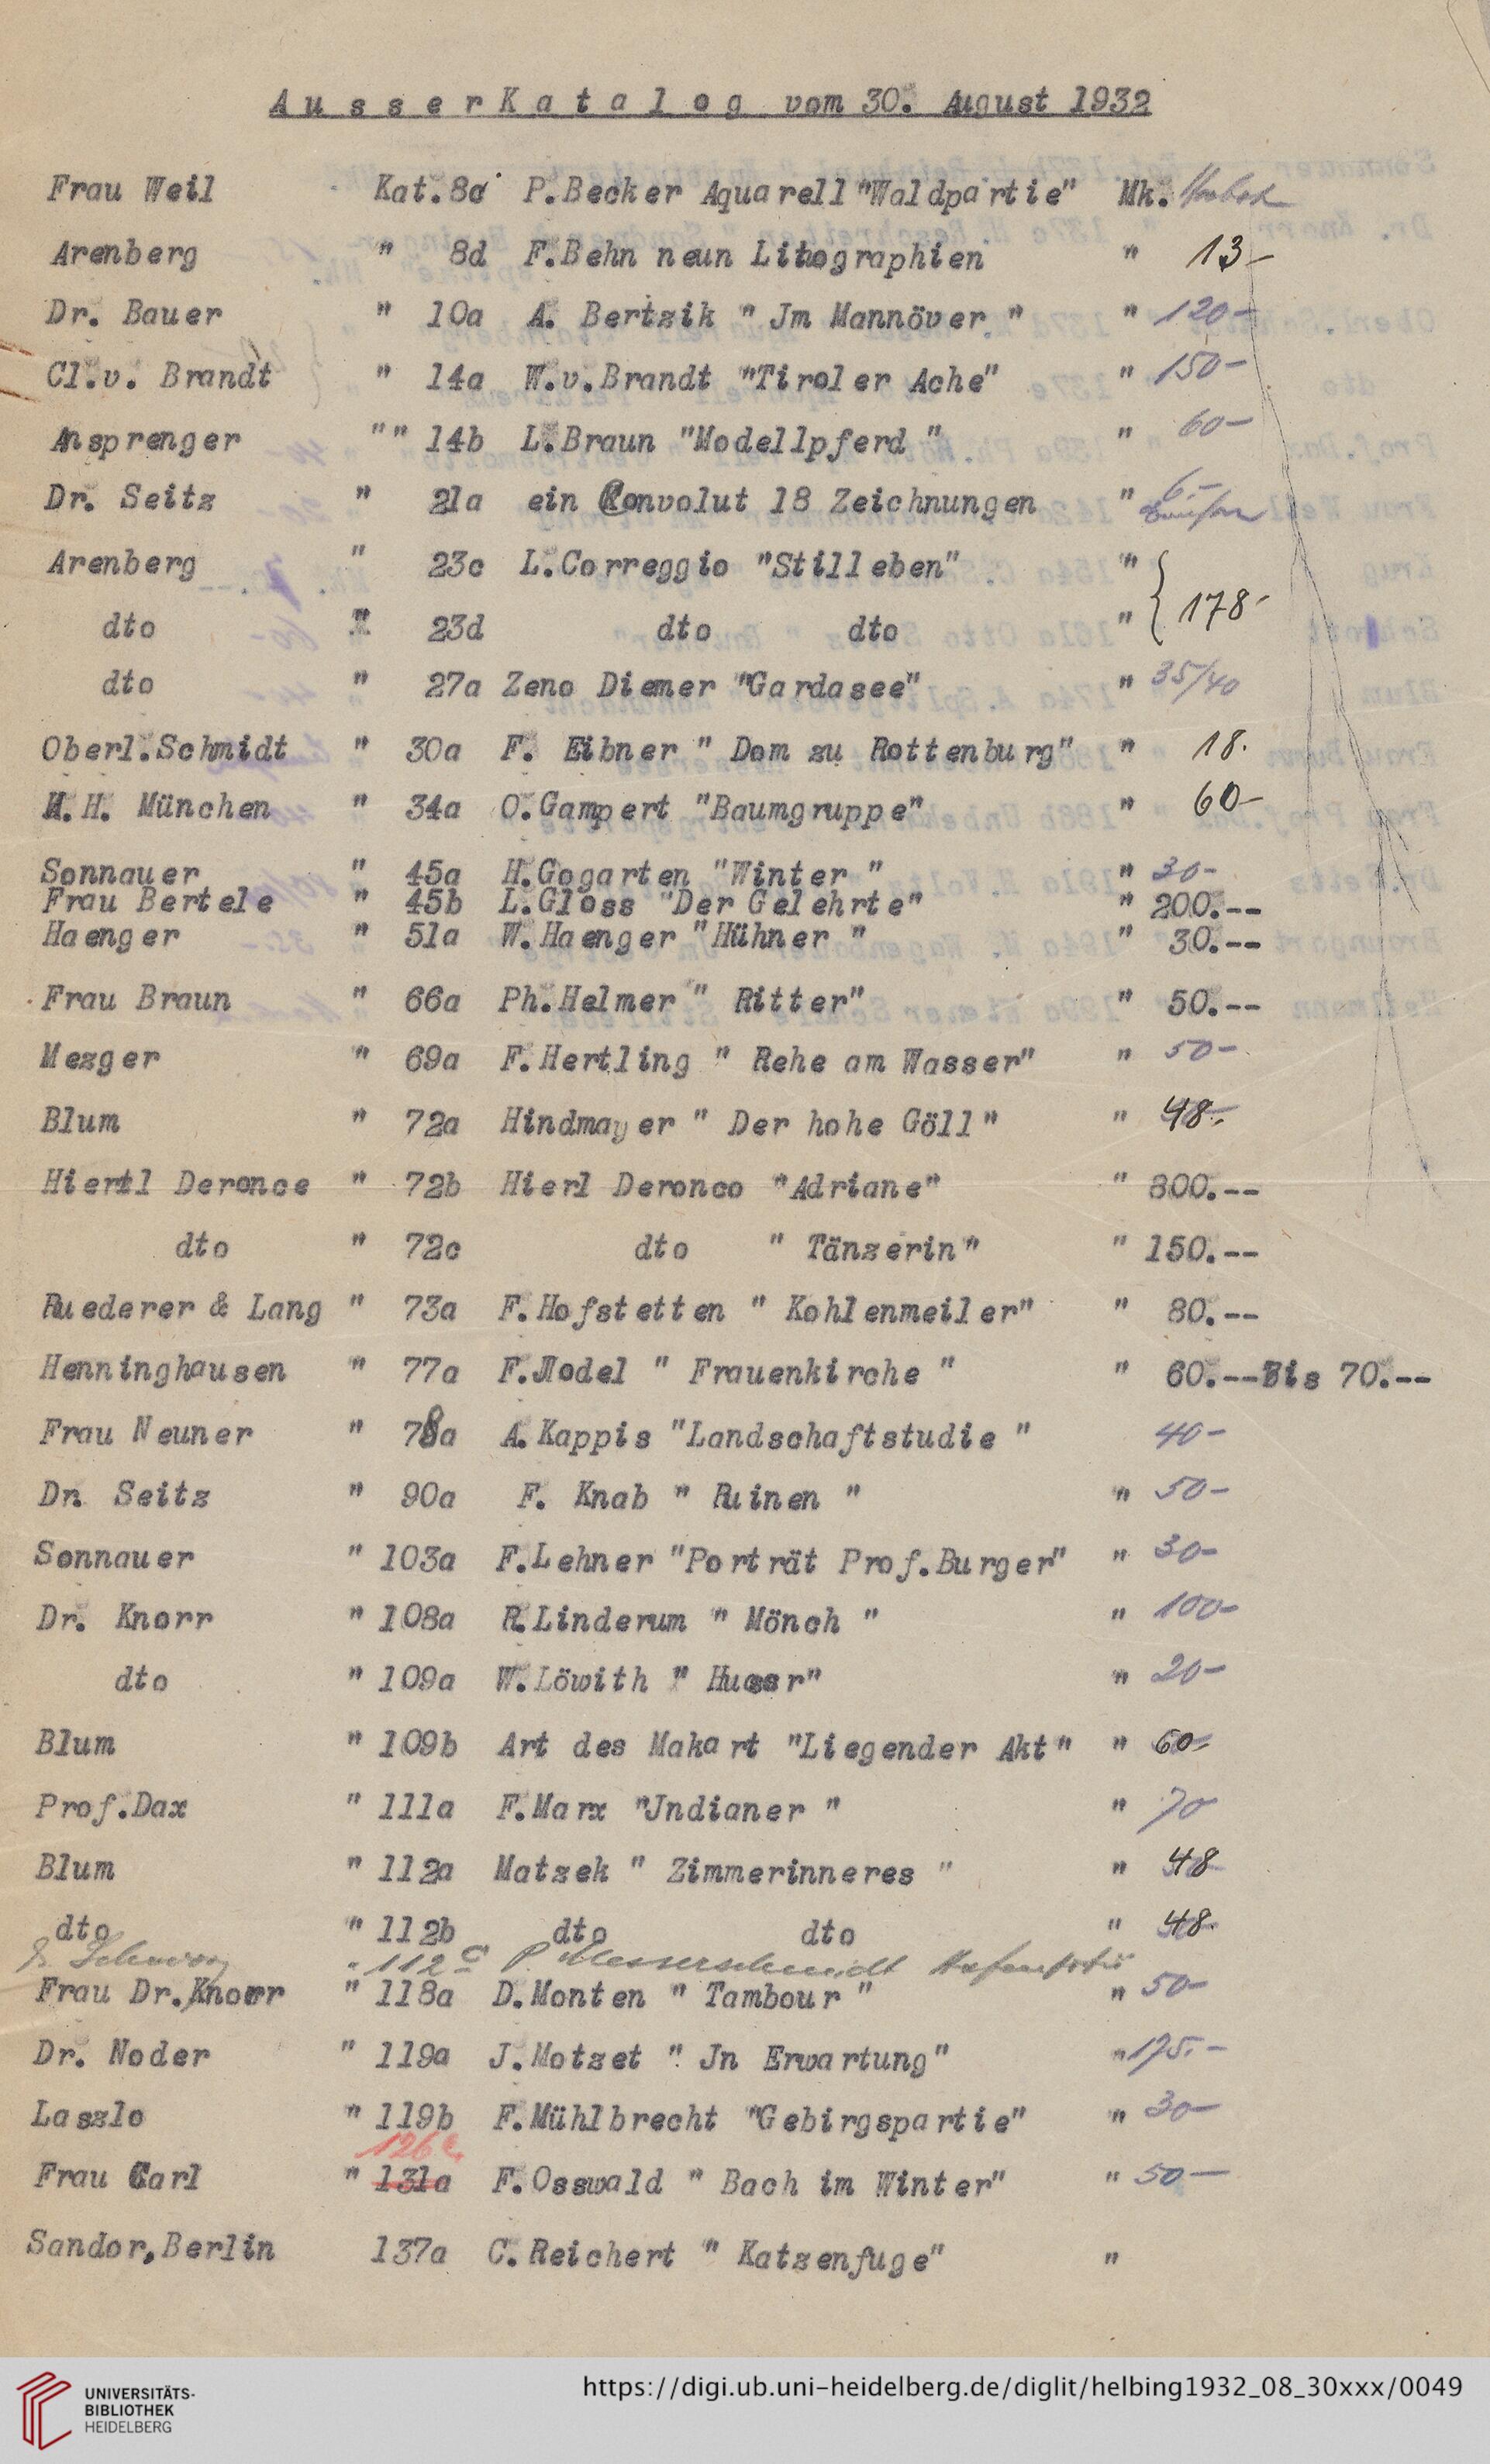 AusserKatalog vom 30. August 1932
Frau Weil Kat.8c P.Becker Aquarell "Waldpartie" Mk.
Arenberg " 8d F.Behn neun Lithographien " 13-
Dr. Bauer " 10a A. Bertzik " Jm Mannöver " " 120-
Cl.v. Brandt " 14a W.v.Brandt "Tiroler Ache" " 150-
Ansprenger "" 14b L.Braun "Modellpferd " " 60-
Dr. Seitz " 21a ein Konvolut 18 Zeichnungen " 6-
Arenberg " 23c L.Correggio "Stilleben" "
dto " 23d dto dto " } 178-
dto " 27a Zeno Diemer "Gardasee" " 35/40
Oberl.Schmidt " 30a F. Eibner " Dom zu Rottenburg" " 18.
H.H. München " 34a O.Gampert "Baumgruppe" " 60-
Sonnauer " 45a H.Gogarten "Winter " " 30-
Frau Bertele " 45b L.Gloss "Der Gelehrte" " 200.--
Haenger " 51a W.Haenger "Hühner " " 30.--
Frau Braun " 66a Ph.Helmer " Ritter" " 50.--
Mezger " 69a F.Hertling " Rehe am Wasser" " 50-
Blum " 72a Hindmayer " Der hohe Göll" " 48.-
Hierl Deronce " 72b Hierl Deronco "Adriane" " 800.--
dto " 72c dto " Tänzerin" " 150.--
Ruederer & Lang " 73a F.Hofstetten " Kohlenmeiler" " 80.--
Henninghausen " 77a F.Hodel " Frauenkirche " " 60.--Bis 70.--
Frau Neuner " 78a A.Kappis "Landschaftstudie " 40-
Dr. Seitz " 90a F. Knab " Ruinen " " 50-
Sonnauer " 103a F.Lehner "Porträt Prof.Burger" " 30-
Dr. Knorr " 108a R.Linderum " Mönch " " 100-
dto " 109a W.Löwith " Husar" " 20-
Blum " 109b Art des Makart "Liegender Akt" " 60-
Prof.Dax " 111a F.Marx "Jndianer " " 70
Blum " 112a Matzek " Zimmerinneres " " 48
dto " 112b dto dto " 48.
" 112c P. Messerschmidt
Frau Dr.Knorr " 118a D.Monten " Tambour " " 50-
Dr. Noder " 119a J.Motzet " Jn Erwartung" " 175.-
Laszlo " 119b F.Mühlbrecht "Gebirgspartie" " 30-
126c
Frau Carl " 131a F.Osswald " Bach im Winter" " 50-
Sandor,Berlin 137a C.Reichert " Katzenfuge" "
UNIVERSITÄTS-
BIBLIOTHEK
HEIDELBERG
https://digi.ub.uni-heidelberg.de/diglit/helbing1932_08_30xxx/0049